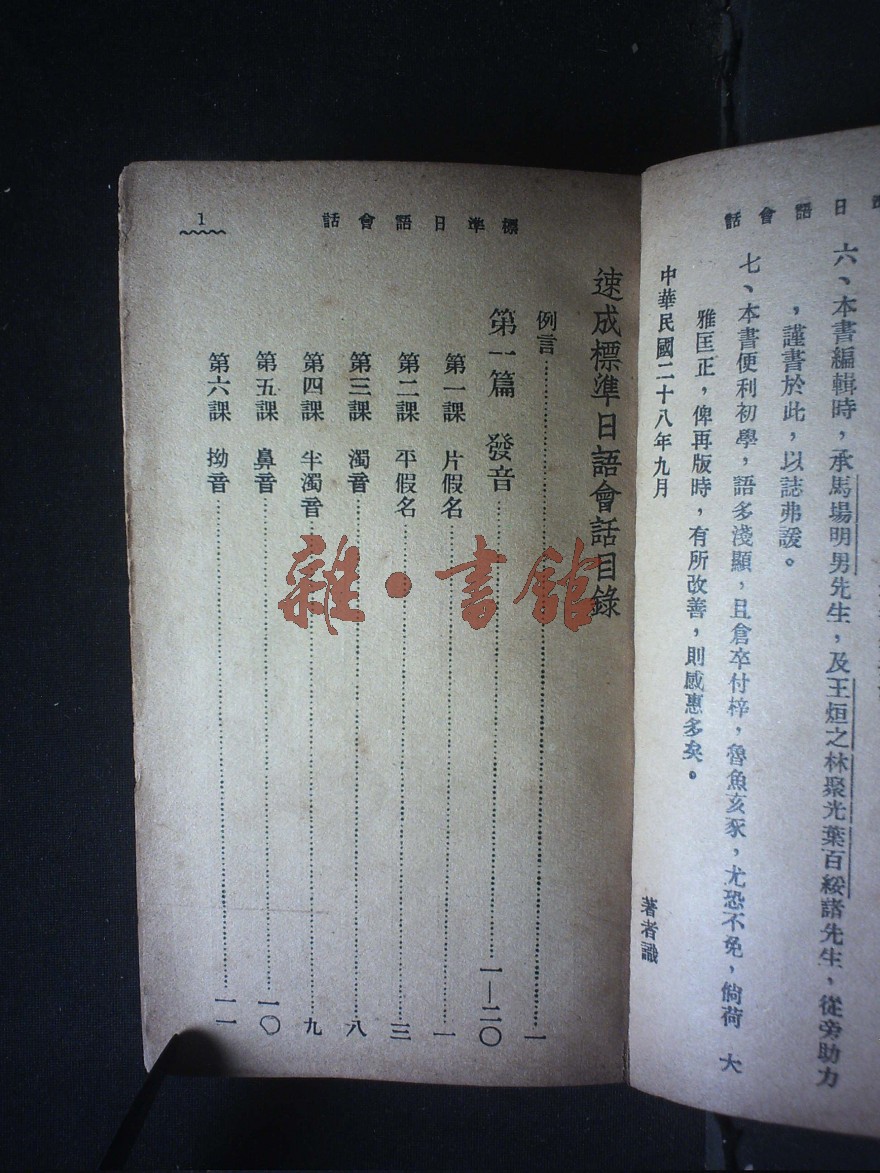 日語會話
六、本書編輯時，承馬場明男先生，及王烜之林聚光葉百綏諸先生，從旁助力
，謹書於此，以誌弗諼。
七、本書便利初學，語多淺顯，且倉卒付梓，魯魚亥豕，尤恐不免，倘荷　大
雅匡正，俾再版時，有所改善，則感惠多矣。
中華民國二十八年九月
著者識
標準日語會話
1
速成標準日語會話目錄
例言……一
第一篇　發音……一—二〇
第一課　片假名……一
第二課　平假名……三
第三課　濁音……八
第四課　半濁音……九
第五課　鼻音……一〇
第六課　拗音……一一
雜·書館